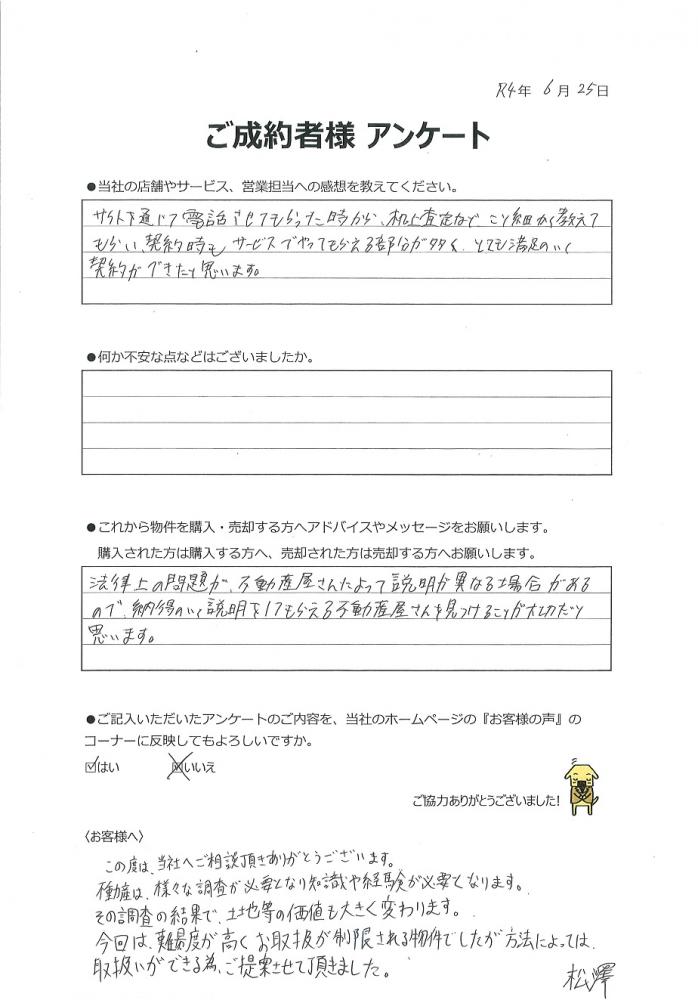 R4年 6月 25日
ご成約者様 アンケート
●当社の店舗やサービス、営業担当への感想を教えてください。
サイトを通じて電話させてもらった時から、机上査定など、こと細かく教えて
もらい、契約時もサービスでやってもらえる部分が多く、とても満足のいく
契約ができたと思います。
●何か不安な点などはございましたか。
●これから物件を購入・売却する方へアドバイスやメッセージをお願いします。
購入された方は購入する方へ、売却された方は売却する方へお願いします。
法律上の問題が、不動産屋さんによって説明が異なる場合がある
ので、納得のいく説明をしてもらえる不動産屋さんを見つけることが大切だと
思います。
●ご記入いただいたアンケートのご内容を、当社のホームページの『お客様の声』の
コーナーに反映してもよろしいですか。
☑はい ☑いいえ
ご協力ありがとうございました!
〈お客様へ〉
この度は、当社へご相談頂きありがとうございます。
不動産は、様々な調査が必要となり知識や経験が必要となります。
その調査の結果で、土地等の価値も大きく変わります。
今回は、難易度が高くお取扱が制限される物件でしたが方法によっては、
取扱いができる為、ご提案させて頂きました。
松澤